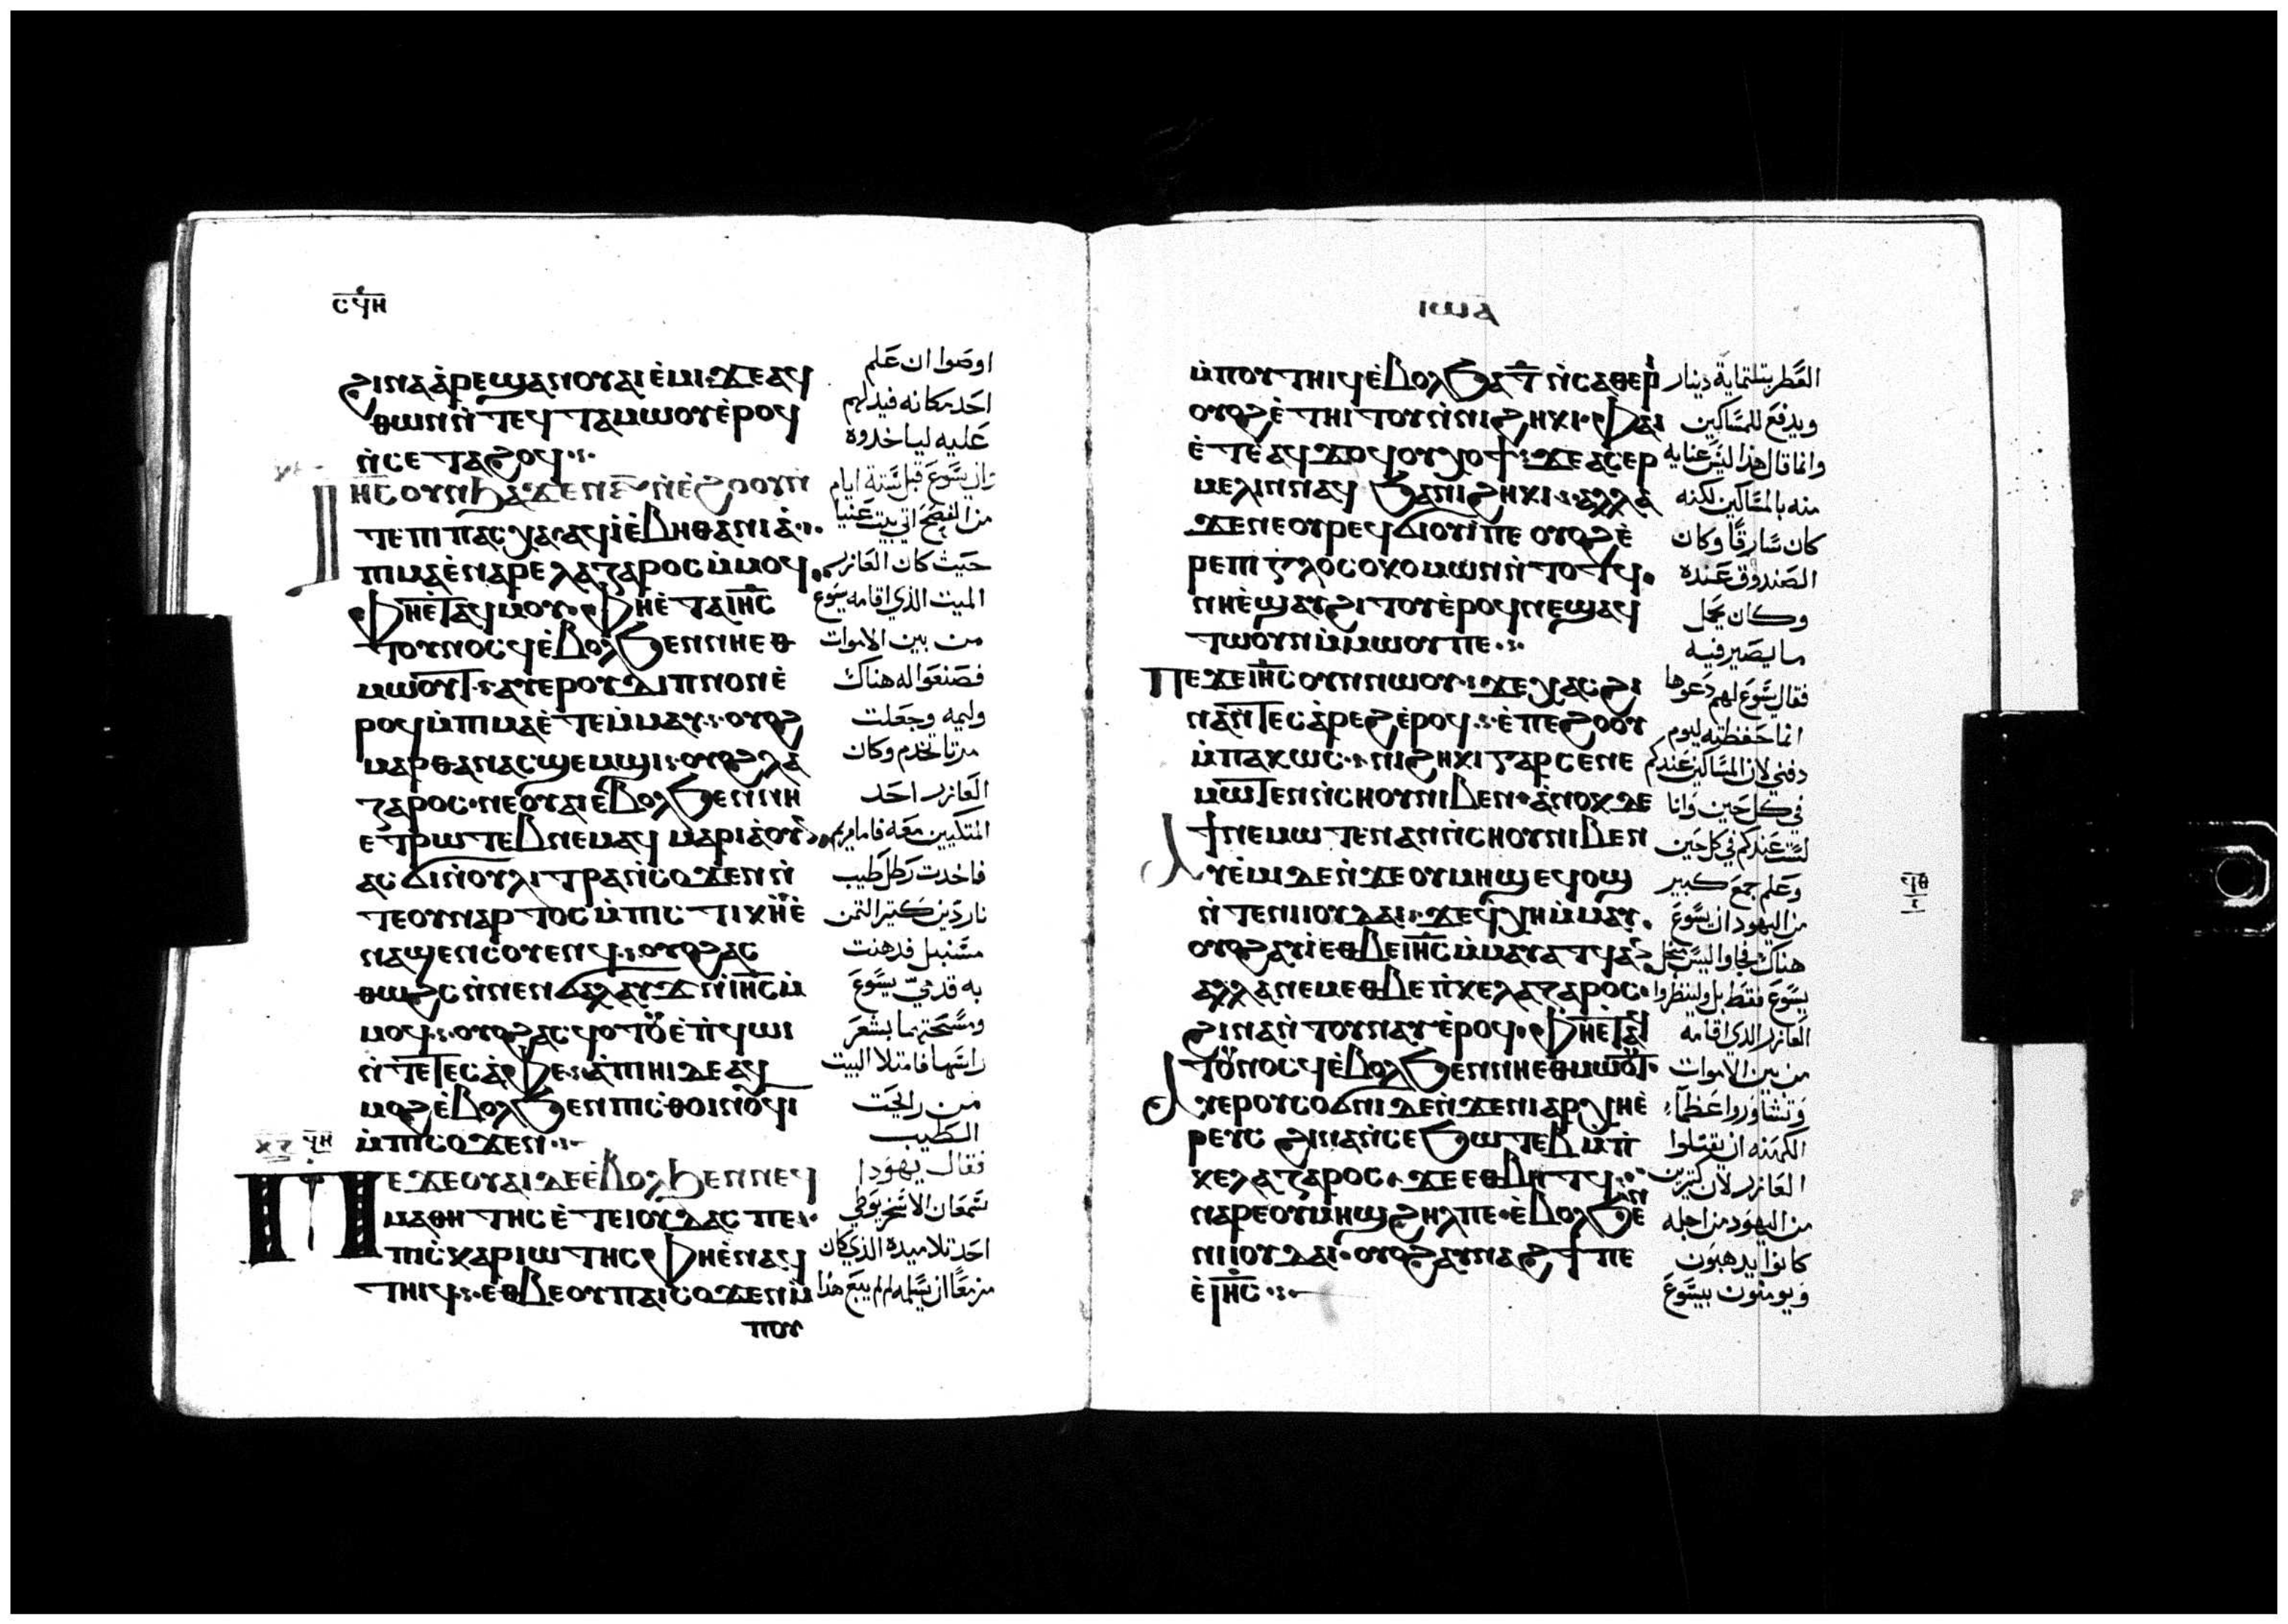 ⲥϥⲏ
ϩⲓⲛⲁ ⲁ̀ⲣⲉϣⲁⲛ ⲟⲩⲁⲓ ⲉ̀ⲙⲓ ϫⲉ ⲁϥ
ⲑⲱⲛ ⲛ̀ⲧⲉϥⲧⲁⲙⲱⲟⲩ ⲉ̀ⲣⲟϥ
ⲛ̀ⲥⲉⲧⲁϩⲟϥ
ⲓⲏⲥ ⲟⲩⲛ ϧⲁϫⲉⲛ ⲋ̅ ⲛ̀ⲉ̀ϩⲟⲟⲩ ⲛ̀
ⲧⲉ ⲡⲓⲡⲁⲥⲭⲁ ⲁϥⲓ̀ ⲉ̀ⲃⲏⲑⲁⲛⲓⲁ̀
ⲡⲓⲙⲁ ⲉ̀ⲛⲁⲣⲉ ⲗⲁⲍⲁⲣⲟⲥ ⲙ̀ⲙⲟϥ
ⲫⲏⲉ̀ⲧⲁϥⲙⲟⲩ ⲫⲏⲉ̀ⲧⲁ ⲓⲏⲥ
ⲧⲟⲩⲛⲟⲥϥ ⲉ̀ⲃⲟⲗ ϧⲉⲛ ⲛⲏⲉⲑ
ⲙⲱⲟⲩⲧ ⲁⲩⲉⲣ ⲟⲩⲇⲓⲡⲛⲟⲛ ⲉ̀
ⲣⲟϥ ⲙ̀ⲡⲓⲙⲁ ⲉ̀ⲧⲉⲙ̀ⲙⲁⲩ ⲟⲩⲟϩ
ⲙⲁⲣⲑⲁ ⲛⲁⲥϣⲉⲙϣⲓ ⲟⲩⲟϩ ⲗⲁ
ⲍⲁⲣⲟⲥ ⲛⲉ ⲟⲩⲁⲓ ⲉ̀ⲃⲟⲗ ϧⲉⲛ ⲛⲏ
ⲉⲧⲣⲱⲧⲉⲃ ⲛⲉⲙⲁϥ ⲙⲁⲣⲓⲁ ⲟⲩⲛ
ⲁⲥϭⲓ ⲛ̀ⲟⲩⲗⲓⲧⲣⲁ ⲛ̀ⲥⲟϫⲉⲛ ⲛ̀
ⲧⲉ ⲟⲩⲛⲁⲣⲧⲟⲥ ⲙ̀ⲡⲓⲥⲧⲓⲕⲏ ⲉ̀
ⲛⲁϣⲉⲛⲥⲟⲩⲉⲛϥ ⲟⲩⲟϩ ⲁⲥ
ⲑⲱϩⲥ ⲛ̀ⲛⲉⲛϭⲁⲗⲁⲩϫ ⲛ̀ⲓⲏⲥ ⲙ̀
ⲙⲟϥ ⲟⲩⲟϩ ⲁⲥϥⲟⲧⲟⲩ ⲉ̀ⲡϥⲱⲓ
ⲛ̀ⲧⲉ ⲧⲉⲥⲁ̀ⲫⲉ ⲁ̀ⲡⲓⲏⲓ ⲇⲉ ⲁϥ
ⲙⲟϩ ⲉ̀ⲃⲟⲗ ϧⲉⲛ ⲡⲓⲥⲑⲟⲓⲛⲟⲩϥⲓ
ⲙ̀ⲡⲓⲥⲟϫⲉⲛ
ⲡⲉϫⲉ ⲟⲩⲁⲓ ⲇⲉ ⲉ̀ⲃⲟⲗ ϧⲉⲛ ⲛⲉϥ
ⲙⲁⲑⲏⲧⲏⲥ ⲉ̀ⲧⲉ ⲓⲟⲩⲇⲁⲥ ⲡⲉ
ⲡⲓⲥⲕⲁⲣⲓⲱⲧⲏⲥ ⲫⲏⲉ̀ⲛⲁϥ
ⲧⲏⲓϥ ⲉⲑⲃⲉⲟⲩ ⲡⲁⲓⲥⲟϫⲉⲛ ⲙ̀
ⲡⲟⲩ
اوصوا ان علم
احد مكانه فيدلهم
عليه لياخدوه
وان يسوع قبل ستة ايام
من الفصح اتي بيت عنيا
حيث كان العازر
الميت الذي اقامه يسوع
من بين الاموات
فصنعوا له هناك
وليمه وجعلت
مرتا تخدم وكان
العازر احد
المتكيين معه فاما مريم
فاخدت رطل طيب
ناردين كتير التمن
مسنبل فدهنت
به قدمي يسوع
ومسحتهما بشعر
راسها فامتلا البيت
من رايحت
الطيب
فقال يهودا
سمعان الاسخريوطي
احد تلاميده الذي كان
مزمعا ان يسلمه لم لم يبع هذا
ⲓⲱⲁ
ⲙ̀ⲡⲟⲩⲧⲏⲓϥ ⲉ̀ⲃⲟⲗ ϧⲁ ⲧ̅ ⲛ̀ⲥⲁⲑⲉⲣⲓ
ⲟⲩⲟϩ ⲉ̀ⲧⲏⲓⲧⲟⲩ ⲛ̀ⲛⲓϩⲏⲕⲓ ⲫⲁⲓ
ⲉ̀ⲧⲉ̀ⲁϥϫⲟϥ ⲟⲩⲭⲟϯ ϫⲉ ⲁⲥⲉⲣ
ⲙⲉⲗⲓⲛ ⲛⲁϥ ϧⲁ ⲛⲓϩⲏⲕⲓ ⲁⲗⲗⲁ̀
ϫⲉ ⲛⲉ ⲟⲩⲣⲉϥϭⲓⲟⲩⲓ̀ ⲡⲉ ⲟⲩⲟϩ ⲉ̀
ⲣⲉ ⲡⲓⲅⲗⲟⲥⲟⲕⲟⲙⲱⲛ ⲛ̀ⲧⲟⲧϥ
ⲛⲏⲉ̀ϣⲁⲩϩⲓⲧⲟⲩ ⲉ̀ⲣⲟϥ ⲛⲉϣⲁϥ
ⲧⲱⲟⲩⲛ ⲙ̀ⲙⲱⲟⲩ ⲡⲉ
ⲡⲉϫⲉ ⲓⲏⲥ ⲟⲩⲛ ⲛⲱⲟⲩ ϫⲉ ⲭⲁⲥ ϩⲓ
ⲛⲁ ⲛ̀ⲧⲉⲥⲁ̀ⲣⲉϩ ⲉ̀ⲣⲟϥ ⲉ̀ⲡⲉϩⲟⲟⲩ
ⲙ̀ⲡⲁⲕⲱⲥ ⲛⲓϩⲏⲕⲓ ⲅⲁⲣ ⲥⲉⲛⲉ
ⲙⲱⲧⲉⲛ ⲛ̀ⲥⲏⲟⲩ ⲛⲓⲃⲉⲛ ⲁ̀ⲛⲟⲕ ⲇⲉ
ϯⲛⲉⲙⲱⲧⲉⲛ ⲁⲛ ⲛ̀ⲥⲏⲟⲩ ⲛⲓⲃⲉⲛ
ⲁⲩⲉ̀ⲙⲓ ⲇⲉ ⲛ̀ϫⲉ ⲟⲩⲙⲏϣ ⲉϥⲟϣ
ⲛ̀ⲧⲉ ⲛⲓⲓⲟⲩⲇⲁⲓ ϫⲉ ϥⲭⲏ ⲙ̀ⲙⲁⲩ
ⲟⲩⲟϩ ⲁⲩⲓ̀ ⲉⲑⲃⲉ ⲓⲏⲥ ⲙ̀ⲙⲁⲩⲁⲧϥ ⲁⲛ
ⲁⲗⲗⲁ ⲛⲉⲙ ⲉⲑⲃⲉ ⲡ̀ⲕⲉⲗⲁⲍⲁⲣⲟⲥ
ϩⲓⲛⲁ ⲛ̀ⲧⲟⲩⲛⲁⲩ ⲉ̀ⲣⲟϥ ⲫⲏⲉ̀ⲧⲁϥ
ⲧⲟⲩⲛⲟⲥϥ ⲉ̀ⲃⲟⲗ ϧⲉⲛ ⲛⲏⲉⲑⲙⲱⲟⲩⲧ
ⲁⲩⲉⲣⲟⲩⲥⲟϭⲛⲓ ⲇⲉ ⲛ̀ϫⲉ ⲛⲓⲁⲣⲭⲏⲉ̀
ⲣⲉⲩⲥ ϩⲓⲛⲁ ⲛ̀ⲥⲉϧⲱⲧⲉⲃ ⲙ̀ⲡ̀
ⲕⲉⲗⲁⲍⲁⲣⲟⲥ ϫⲉ ⲉⲑⲃⲏⲧϥ
ⲛⲁⲣⲉ ⲟⲩⲙⲏϣ ϩⲏⲗ ⲡⲉ ⲉ̀ⲃⲟⲗ ϧⲉⲛ
ⲛⲓⲓⲟⲩⲇⲁⲓ ⲟⲩⲟϩ ⲁⲩⲛⲁϩϯ ⲡⲉ
ⲉ̀ⲓⲏⲥ
العطر بتلتماية دينار
ويدفع للمساكين
وانما قال هذا ليس عنايه
منه بالمساكين لكنه
كان سارقا وكان
الصندوق عنده
وكان يحمل
ما يصير فيه
فقال يسوع لهم دعوها
انما حفظته ليوم
دفني لان المساكين عندكم
في كل حين وانا
لست عندكم في كل حين
وعلم جمع كبير
من اليهود ان يسوع
هناك فجاوا ليس من اجل
يسوع فقط بل ولينظروا
العازر الذي اقامه
من بين الاموات
وتشاوروا عظما
الكهنه ان يقتلوا
العازر لان كتيرين
من اليهود من اجله
كانوا يدهبون
ويومنون بيسوع
ϥⲑ